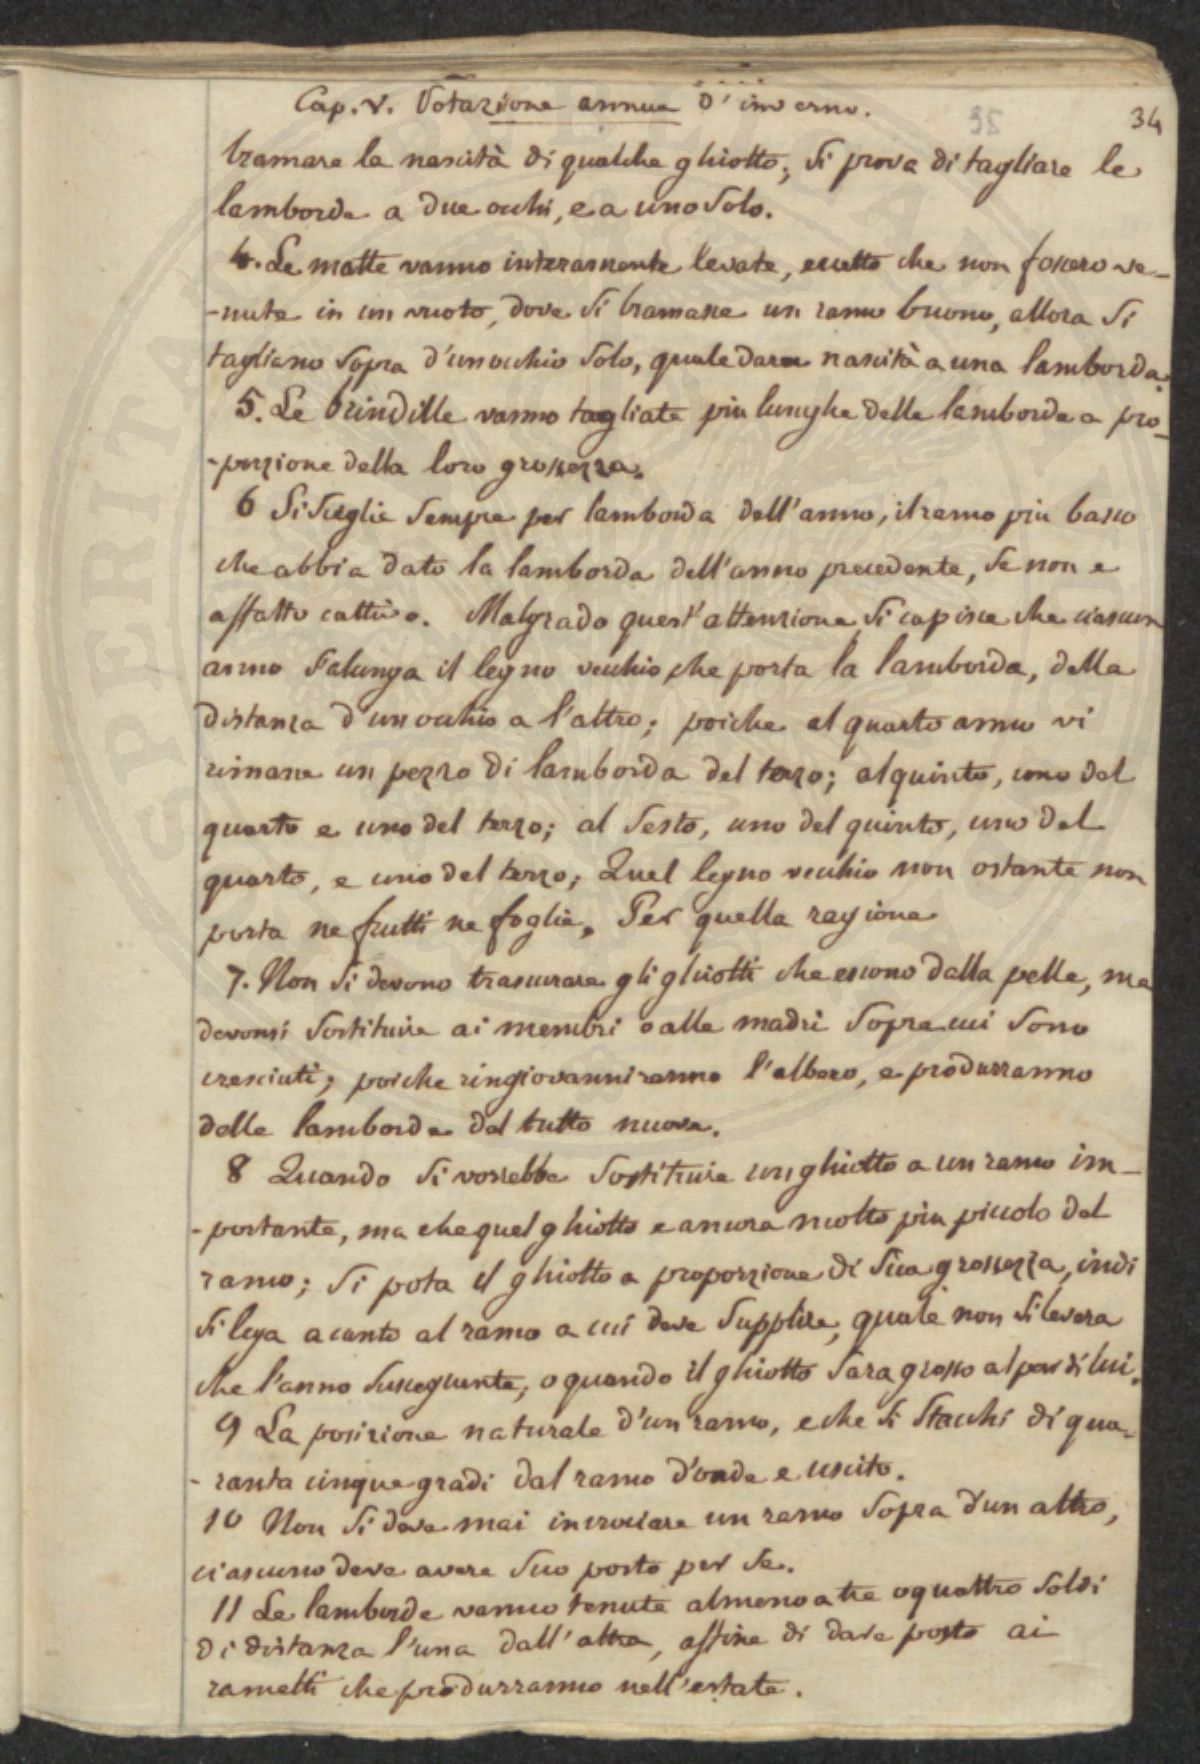 Cap. V. Potazione annua d'inverno.
35
34
bramare la nascità di qualche ghiotto; si prova di tagliare le
lamborde a due occhi, e a uno solo.
4. Le matte vanno interamente levate, eccetto che non fossero ve-
-nute in un vuoto, dove si bramasse un ramo buono, allora si
tagliano sopra d'un occhio solo, quale dara nascità a una lamborda.
5. Le brindille vanno tagliate piu lunghe delle lamborde a pro-
-porzione della loro grossezza.
6 Si sceglie sempre per lamborda dell'anno, il ramo piu basso
che abbia dato la lamborda dell'anno precedente, se non e
affatto cattivo. Malgrado quest'attenzione, si capisce che ciascun
anno s'alunga il legno vecchio che porta la lamborda, della
distanza d'un occhio a l'altro; poiche al quarto anno vi
rimane un pezzo di lamborda del terzo; al quinto, uno del
quarto e uno del terzo; al sesto, uno del quinto, uno del
quarto, e uno del terzo; Quel legno vecchio non ostante non
porta ne frutti ne foglie. Per quella ragione
7. Non si devono trascurare gli ghiotti che escono dalla pelle, ma
devonsi sostituire ai membri o alle madri sopra cui sono
cresciuti; poiche ringiovanniranno l'albero, e produrranno
delle lamborde del tutto nuove.
8 Quando si vorrebbe sostituire un ghiotto a un ramo im-
-portante, ma che quel ghiotto e ancora molto piu piccolo del
ramo; si pota il ghiotto a proporzione di sua grossezza, indi
si lega acanto al ramo a cui deve supplire, quale non si levera
che l'anno susseguente, o quando il ghiotto sara grosso al par di lui.
9 La posizione naturale d'un ramo, e che si stacchi di qua-
-ranta cinque gradi dal ramo d'onde e uscito.
10 Non si deve mai incrociare un ramo sopra d'un altro,
ciascuno deve avere suo posto per se.
11 Le lamborde vanno tenute almeno a tre o quattro soldi
di distanza l'una dall'altra, affine di dare posto ai
rametti che produrranno nell'estate.